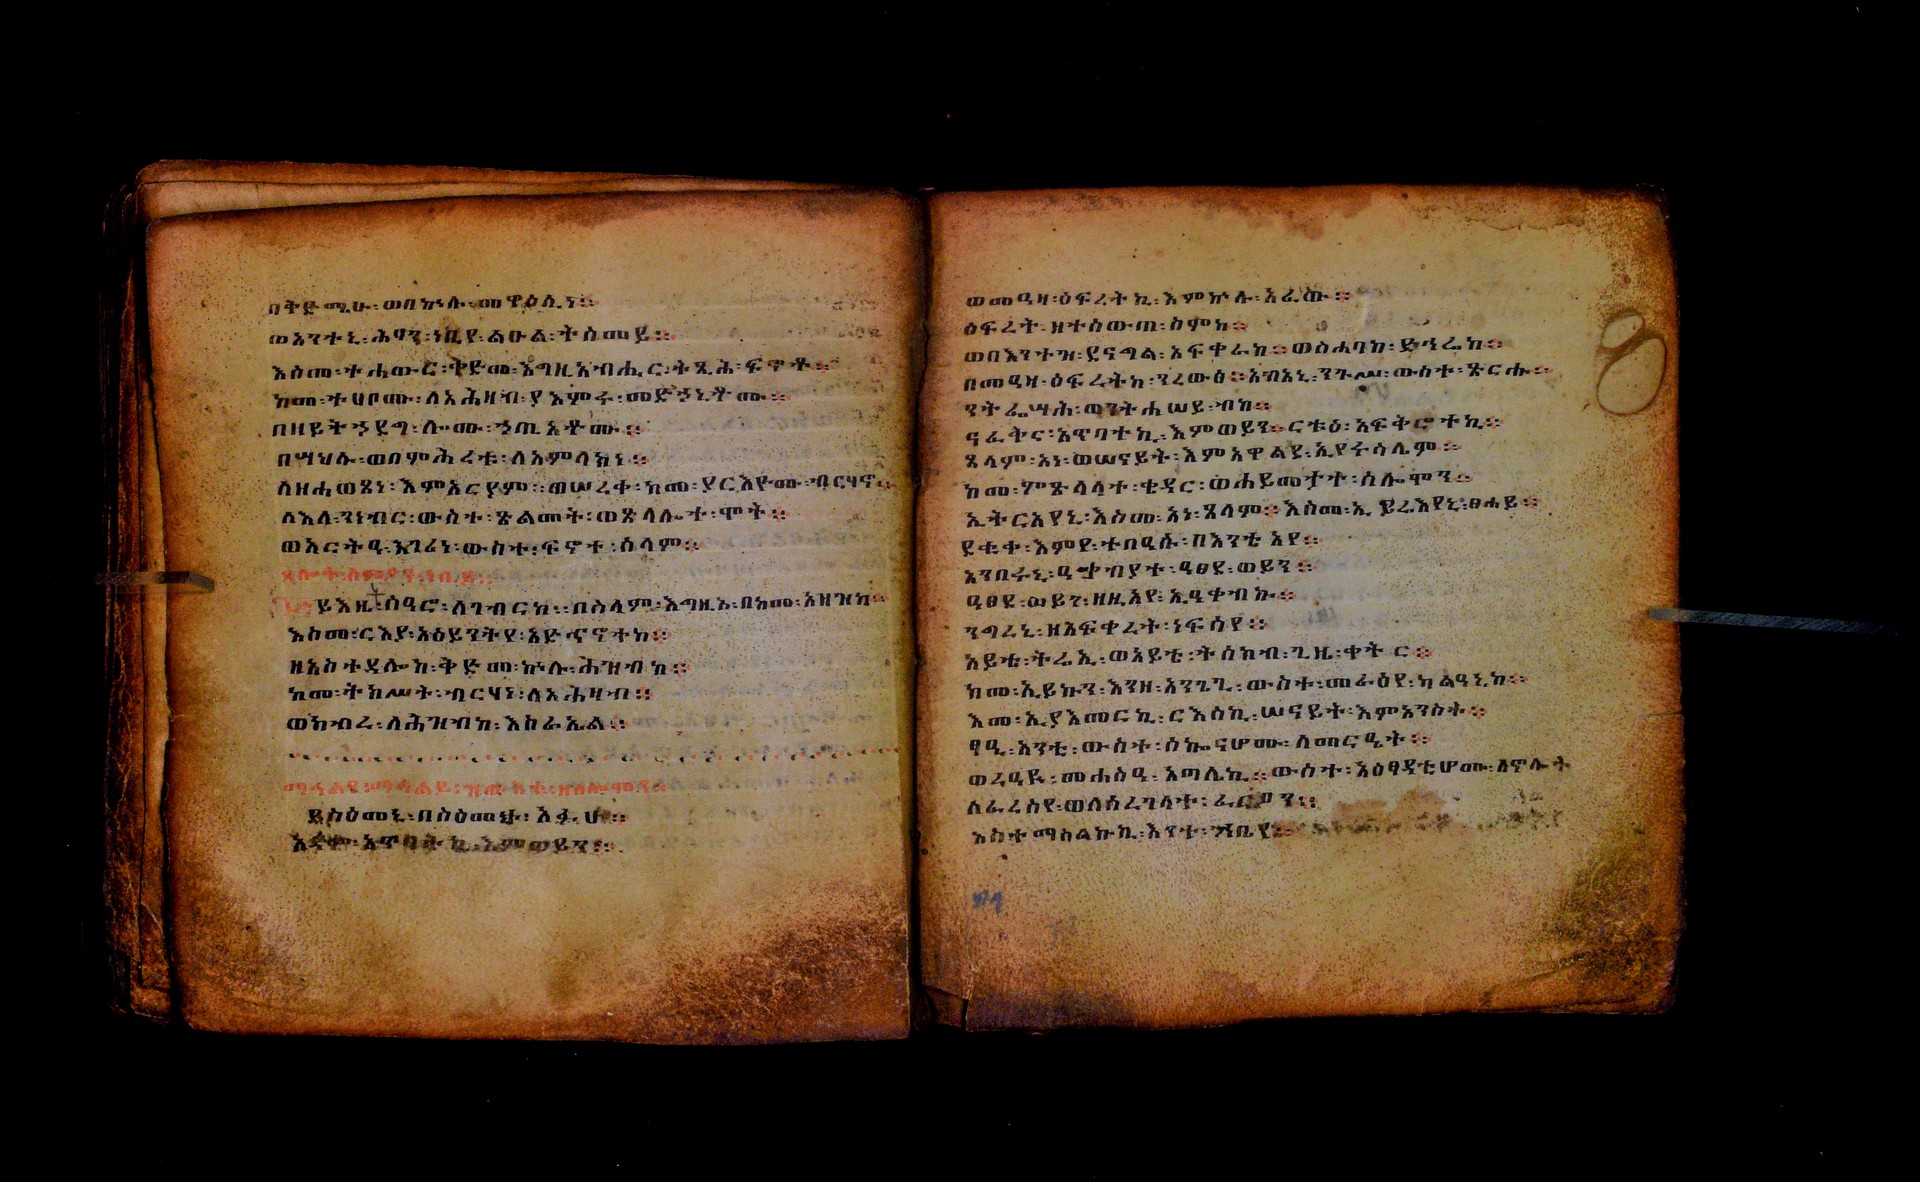 በቅድሜሁ፡ወበኵሉ፡መዋዕሊነ።
ወአንተኒ፡ሕፃን፡ነቢየ፡ልዑል፡ትሰመይ።
እስመ፡ተሐውር፡ቅድመ፡እግዚአብሔር፡ትጺሕ፡ፍኖቶ።
ከመ፡ተሀቦሙ፡ለአሕዛብ፡ያእምሩ፡መድኀኒቶሙ።
በዘይትኀደግ፡ሎሙ፡ኀጢአቶሙ።
በሣህሉ፡ወበምሕረቱ፡ለአምላክነ።
ሰዘሐወጸነ፡እምአርያም።ወሠረቀ፡ከመ፡ያርእዮሙ፡ብርሃኖ።
ለእለ፡ንነብር፡ውስተ፡ጽልመት፡ወጽላሎተ፡ሞት።
ወአርትዒ፡እገሪነ፡ውስተ፡ፍኖተ፡ሰላም።
ጸሎተ፡ስምዖን፡ነቢይ።
ይእዜ፡ስዓሮ፡ለገብርከ።በሰላም፡እግዚኦ፡በከመ፡አዘዝከ።
እስመ፡ርእያ፡አዕይንትየ፡አድኅኖተከ።
ዘአስተዳሎከ፡ቅድመ፡ኵሉ፡ሕዝብከ።
ከመ፡ትክሥት፡ብርሃነ፡ለአሕዛብ።
ወክብረ፡ለሕዝብከ፡እስራኤል።
ማኅልየ፡ማኅልይ፡ዝውእቱ፡ዘሰሎሞን።
ይስዕመኒ፡በስዕመተ፡አፉሁ።
አዳም፡አጥባትኪ፡እምወይን።
ወመዓዛ፡ዕፍረትኪ፡እምኵሉ፡አፈው።
ዕፍረት፡ዘተሰውጠ፡ስምከ።
ወበእንተዝ፡ደናግል፡አፍቀራከ።ወስሐባከ፡ድኅሬከ።
በመዓዛ፡ዕፍረትከ፡ንረውፅ።አብአኒ፡ንጉሥ፡ውስተ፡ጽርሑ።
ንትፌሣሕ፡ወንትሐሠይ፡ብከ።
ናፈቅር፡አጥባተኪ፡እምወይን።ርቱዕ፡አፍቅሮተኪ።
ጸላም፡አነ፡ወሠናይት፡እምአዋልደ፡ኢየሩሳሌም።
ከመ፡ምጽላላተ፡ቄዳር፡ወሐይመታተ፡ሰሎሞን።
ኢትርአያኒ፡እስመ፡አነ፡ጸላም።እስመ፡ኢይሬእየኒ፡ፀሐይ።
ደቂቀ፡እምየ፡ተበዓሱ፡በእንቲአየ።
አንበሩኒ፡ዓቃቢተ፡ዓፀደ፡ወይን።
ዓፀደ፡ወይን፡ዘዚአየ፡ኢዓቀብኩ።
ንግረኒ፡ዘአፍቀረት፡ነፍስየ።
አይቴ፡ትሬኢ፡ወአይቴ፡ትሰክብ፡ጊዜ፡ቀትር።
ከመ፡ኢይኩን፡እንዘ፡አንጌጊ፡ውስተ፡መራዕየ፡ካልዓኒከ።
እመ፡ኢያእመርኪ፡ርእሰኪ፡ሠናይት፡እምአንስት።
ፃዒ፡አንቲ፡ውስተ፡ሰኰናሆሙ፡ለመርዔት።
ወረዓዪ፡መሐስዓ፡አጣሊኪ።ውስተ፡አዕፃዳቲሆሙ፡ለኖሎት
ለፈረስየ፡ወለሰረገላተ፡ፈርዖን።
አስተማሰልኩኪ፡እንተ፡ኀቤየ።